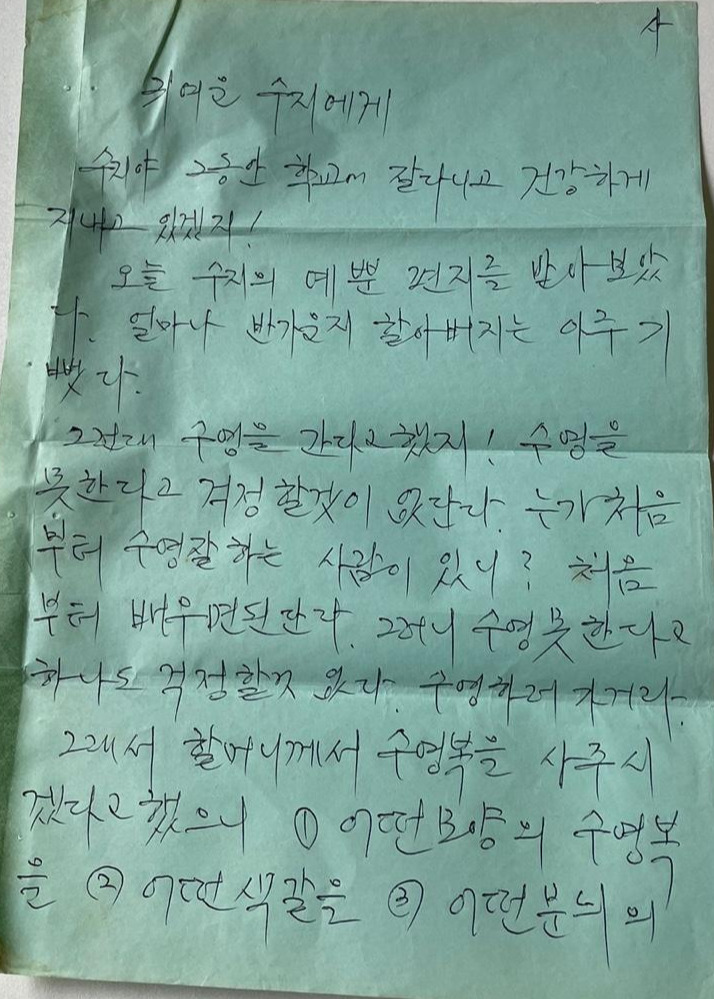 귀여운 수지에게
수지야 그동안 학교에 잘다니고 건강하게
지내고 있겠지!
오늘 수지의 예쁜 편지를 받아보았
다. 얼마나 반가운지 할아버지는 아주 기
뻤다.
그런데 수영을 간다고했지! 수영을
못한다고 걱정할것이 없단다. 누가처음
부터 수영잘하는 사람이 있니? 처음
부터 배우면된단다. 그러니 수영못한다고
하나도 걱정할것 없다. 수영하러 가거라.
그래서 할머니께서 수영복을 사주시
겠다고했으니 ① 어떤모양의 수영복
을 ② 어떤색갈을 ③ 어떤분늬의